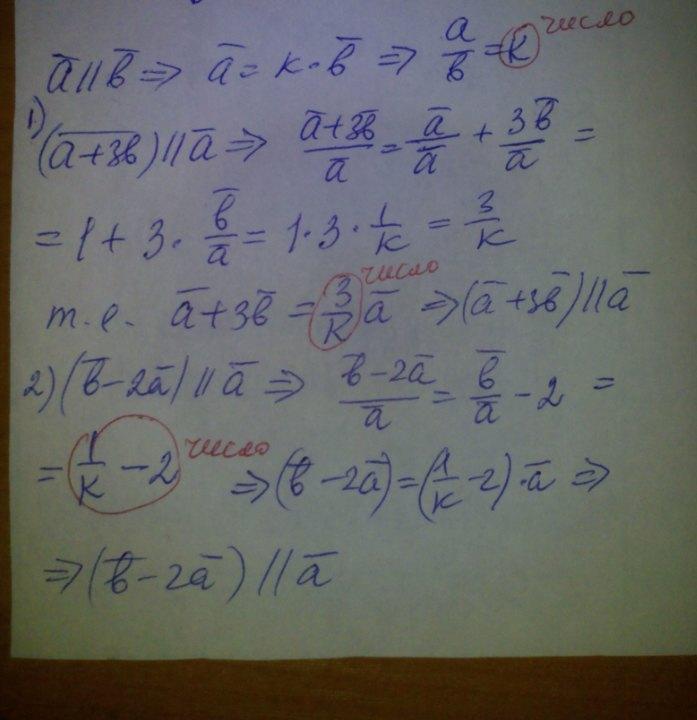 a̅ || b̅ ⇒ a̅ = k · b̅ ⇒ a/b = k число
1)
(a̅+3b̅) || a̅ ⇒ (a̅+3b̅)/a̅ = a̅/a̅ + 3b̅/a̅ =
= 1 + 3 · b̅/a̅ = 1 · 3 · 1/k = 3/k
т.е. a̅ + 3b̅ = 3/k a̅ число ⇒ (a̅+3b̅) || a̅
2) (b̅ - 2a̅) || a̅ ⇒ (b̅ - 2a̅)/a̅ = b̅/a̅ - 2 =
= 1/k - 2 число ⇒ (b̅ - 2a̅) = (1/k - 2) · a̅ ⇒
⇒ (b̅ - 2a̅) || a̅